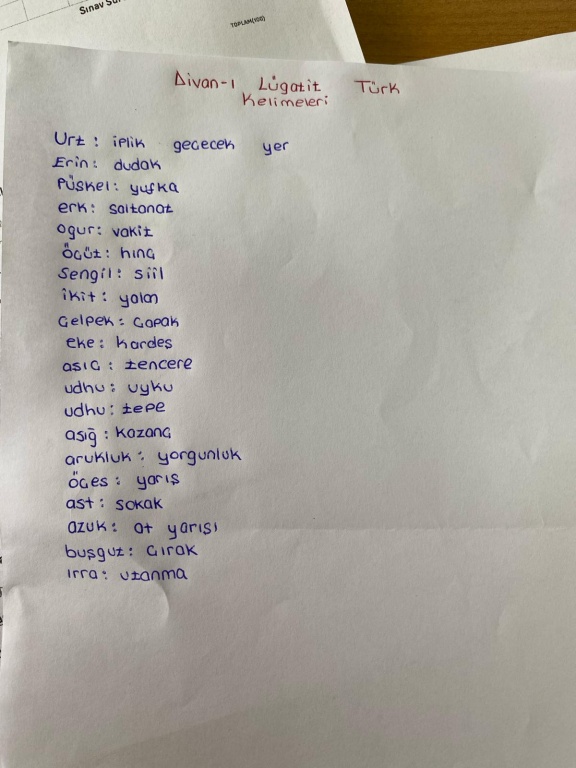 Sınav
TOPLAM(100)
Divan-ı Lügatit Türk
Kelimeleri
Urt : iplik geçecek yer
Erin : dudak
Püskel : yufka
erk : saltanat
ogur : vakit
Öçüt : hınç
Sengil : siil
ikit : yalan
Çelpek : Çapak
eke : kardeş
aşıç : tencere
udhu : uyku
udhu : tepe
asığ : kazanç
arukluk : yorgunluk
öçes : yarış
ast : sokak
azuk : at yarışı
buşgut : Çırak
ırra : utanma